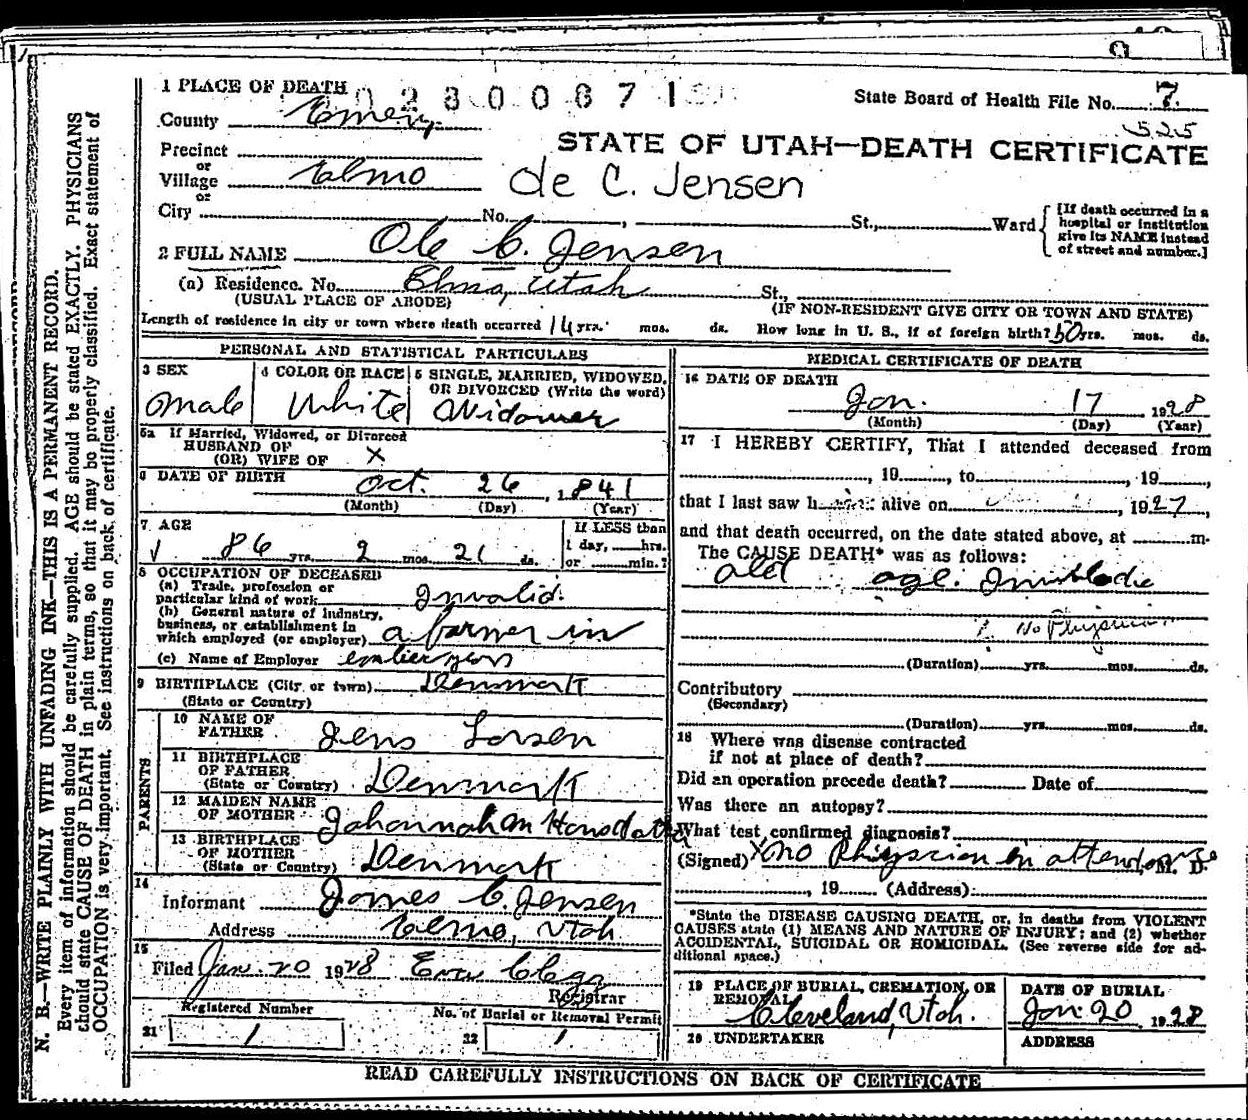 1 PLACE OF DEATH
2 3 0 0 6 7 1
State Board of Health File No. 7
525
County Emery
STATE OF UTAH—DEATH CERTIFICATE
Precinct
or
Village Elmo
de C. Jensen
or
City No. , St., Ward
[If death occurred in a
hospital or institution
give its NAME instead
of street and number.]
2 FULL NAME Ole C. Jensen
(a) Residence. No. Elmo, Utah St.,
(USUAL PLACE OF ABODE) (IF NON-RESIDENT GIVE CITY OR TOWN AND STATE)
Length of residence in city or town where death occurred 14 yrs. mos. ds. How long in U. S., if of foreign birth? 50 yrs. mos. ds.
PERSONAL AND STATISTICAL PARTICULARS
3 SEX
male
4 COLOR OR RACE
White
5 SINGLE, MARRIED, WIDOWED,
OR DIVORCED (Write the word)
Widower
5a If Married, Widowed, or Divorced
HUSBAND OF
(OR) WIFE OF X
6 DATE OF BIRTH Oct. 26, 1841
(Month) (Day) (Year)
7 AGE
86 yrs. 2 mos. 21 ds.
If LESS than
1 day, hrs.
or min.?
8 OCCUPATION OF DECEASED
(a) Trade, profession or
particular kind of work Invalid.
(b) General nature of industry,
business, or establishment in
which employed (or employer) a farmer in
(c) Name of Employer earlier years
9 BIRTHPLACE (City or town) Denmark
(State or Country)
PARENTS
10 NAME OF
FATHER Jens Larsen
11 BIRTHPLACE
OF FATHER
(State or Country) Denmark
12 MAIDEN NAME
OF MOTHER Johannah M Hansdatta
13 BIRTHPLACE
OF MOTHER
(State or Country) Denmark
14
Informant James C. Jensen
Address Elmo, Utah
15
Filed Jan. 20 1928
Registrar
Registered Number
21 1
No. of Burial or Removal Permit
22 1
MEDICAL CERTIFICATE OF DEATH
16 DATE OF DEATH
Jan. 17 1928
(Month) (Day) (Year)
17 I HEREBY CERTIFY, That I attended deceased from
, 19 , to , 19 ,
that I last saw h alive on , 1927,
and that death occurred, on the date stated above, at m.
The CAUSE DEATH* was as follows:
old age.
No Physician
(Duration) yrs. mos. ds.
Contributory
(Secondary)
(Duration) yrs. mos. ds.
18 Where was disease contracted
if not at place of death?
Did an operation precede death? Date of
Was there an autopsy?
What test confirmed diagnosis?
(Signed) X no Physician in attendance M. D.
, 19 (Address)
*State the DISEASE CAUSING DEATH, or, in deaths from VIOLENT
CAUSES state (1) MEANS AND NATURE OF INJURY; and (2) whether
ACCIDENTAL, SUICIDAL OR HOMICIDAL. (See reverse side for ad-
ditional space.)
19 PLACE OF BURIAL, CREMATION, OR
REMOVAL
Cleveland, Utah.
DATE OF BURIAL
Jan. 20 1928
20 UNDERTAKER
ADDRESS
READ CAREFULLY INSTRUCTIONS ON BACK OF CERTIFICATE
N. B.—WRITE PLAINLY WITH UNFADING INK—THIS IS A PERMANENT RECORD.
Every item of information should be carefully supplied. AGE should be stated EXACTLY. PHYSICIANS
should state CAUSE OF DEATH in plain terms, so that it may be properly classified. Exact statement of
OCCUPATION is very important. See instructions on back of certificate.